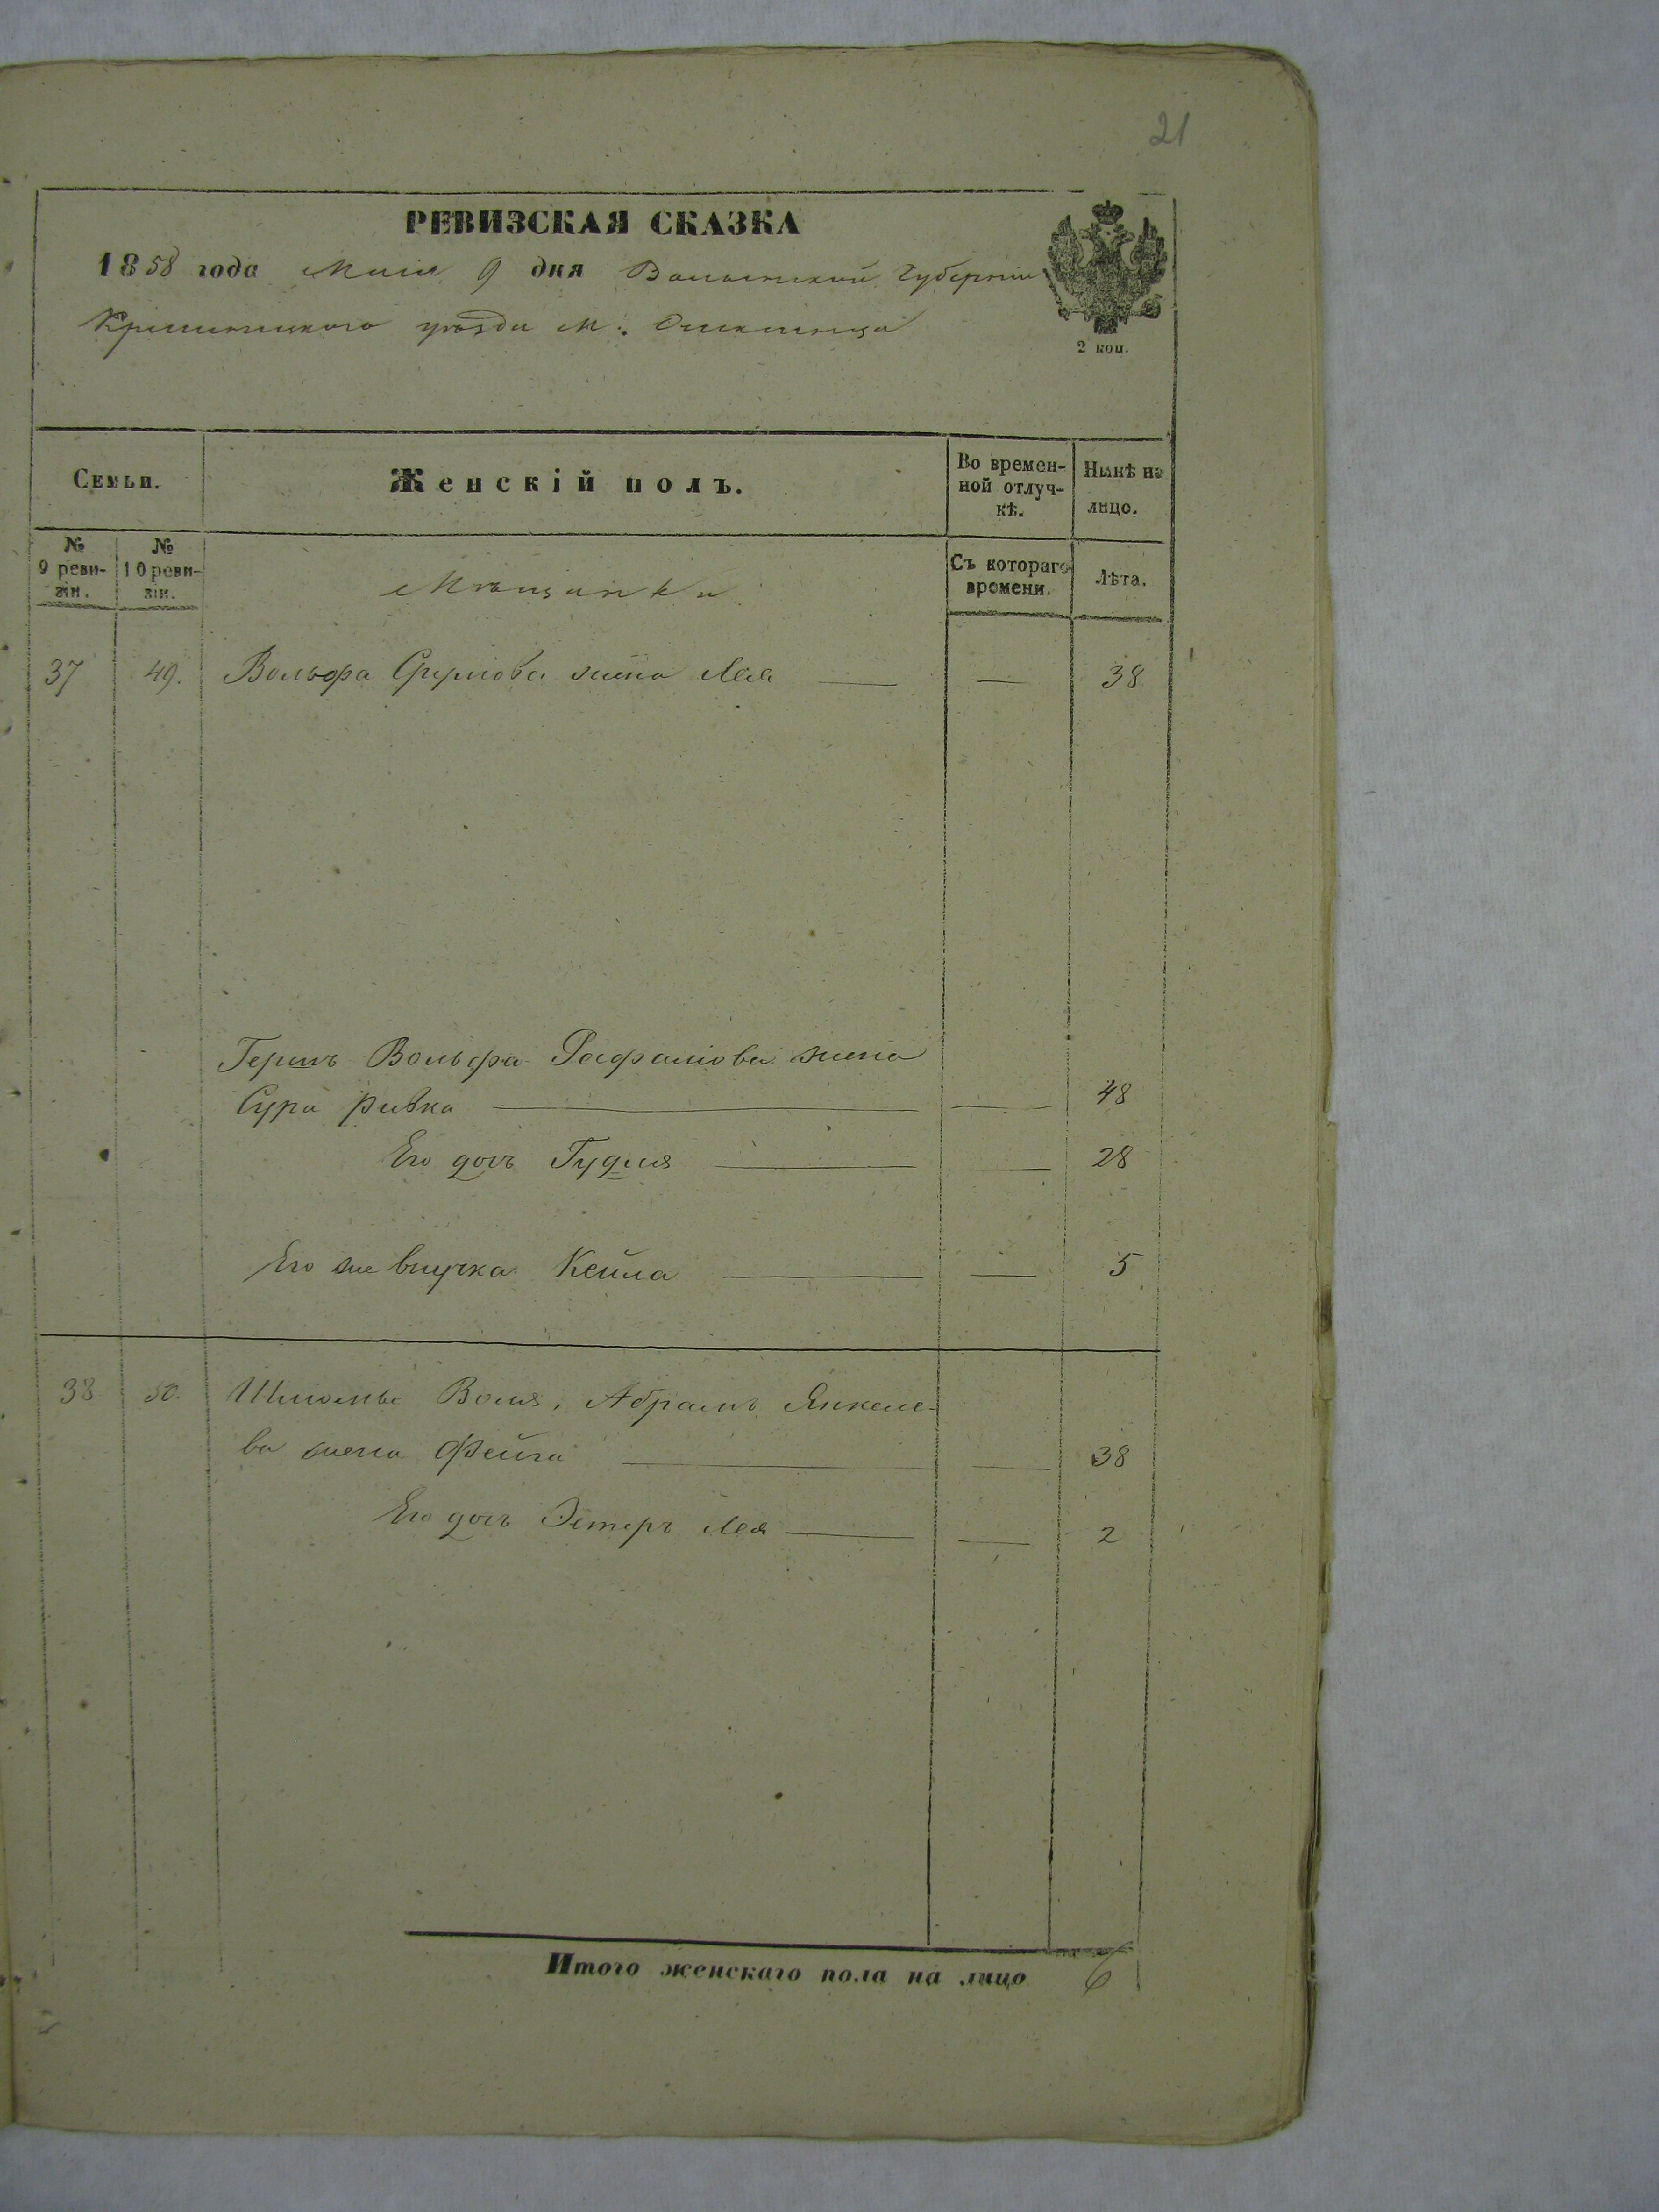 21
РЕВИЗСКАЯ СКАЗКА
1858 года Мая 9 дня Волынской Губерніи
Кременецкого уѣзда М:
2 коп.
Семьи.
Женскій полъ.
Во времен-
ной отлуч-
кѣ.
Нынѣ на
лицо.
№
9 реви-
зіи.
№
10 реви-
зіи.
Мѣщанки
Съ котораго
времени.
Лѣта.
37 49. Вольфа Сруліова жена Лея — — 38
Гершъ Вольфа Рафаліова жена
Сура Ривка — — 48
Его дочь Гудля — — 28
Его же внучка Кейла — — 5
38 50. Шліомы Воля, Абрамъ Янкеле-
ва жена Фейга — — 38
Его дочь Эстеръ Лея — — 2
Итого женскаго пола на лицо 6